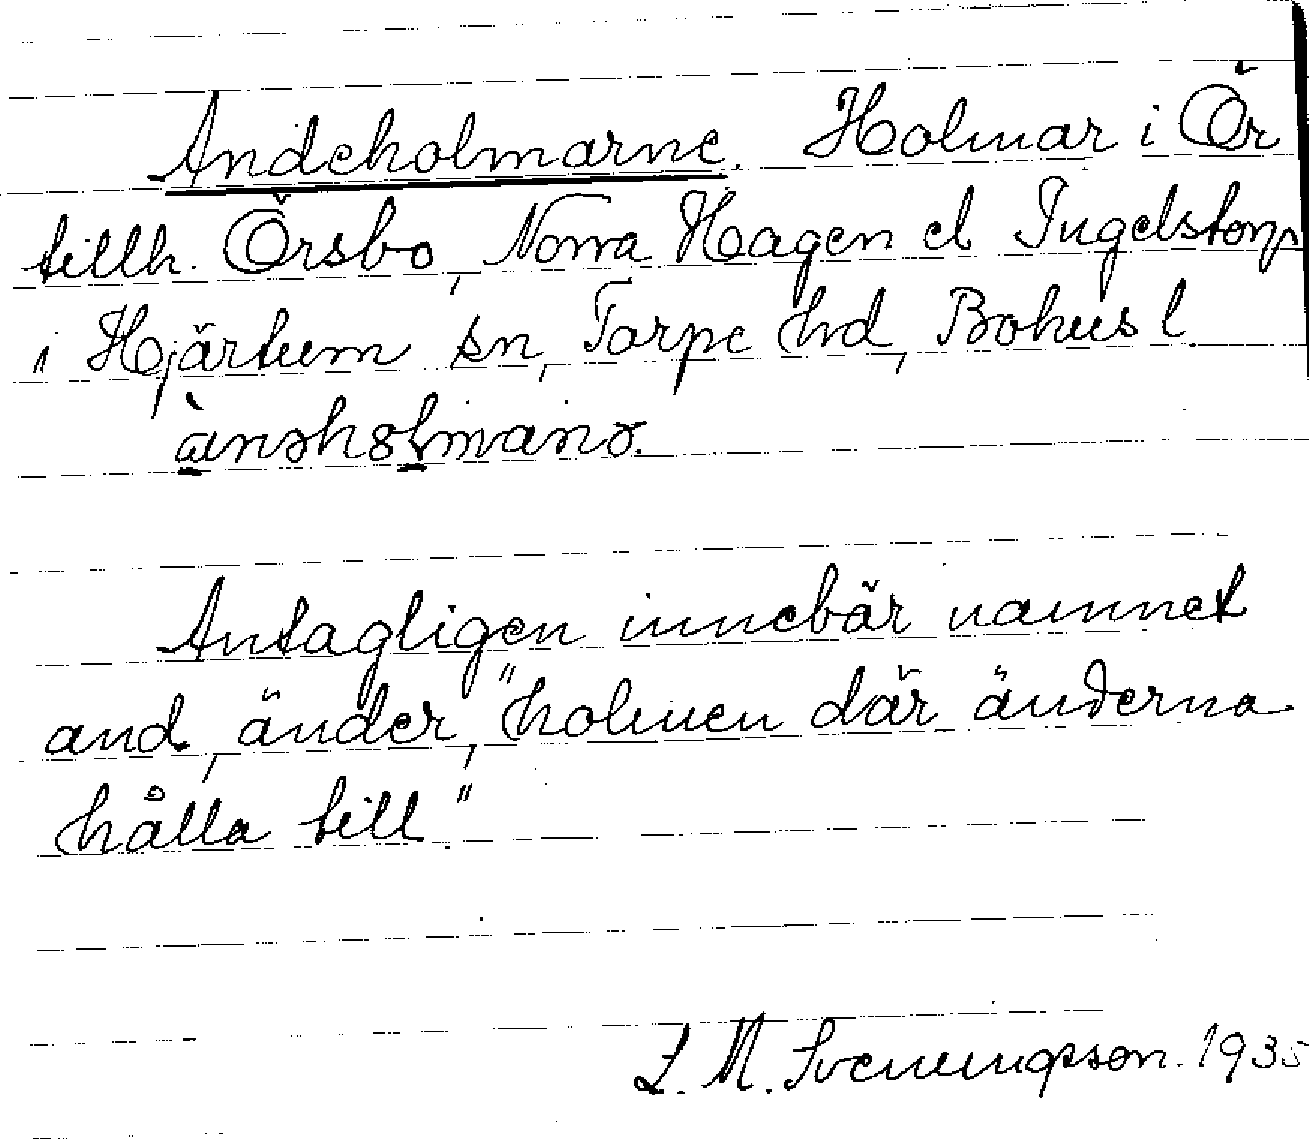 Andeholmarne. Holmar i Ör
tillh. Örsbo, Norra Hagen el Ingelstorp
i Hjärtum sn, Torpe hd, Bohus l.
ànəhɷlmanə.
Antagligen innebär namnet
and, änder, "holmen där änderna
hålla till."
L. M. Svenungsson. 1935